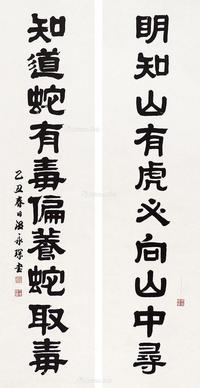 明知山有虎必向山中尋
知道蛇有毒偏養蛇取毒
乙丑春日温永琛書